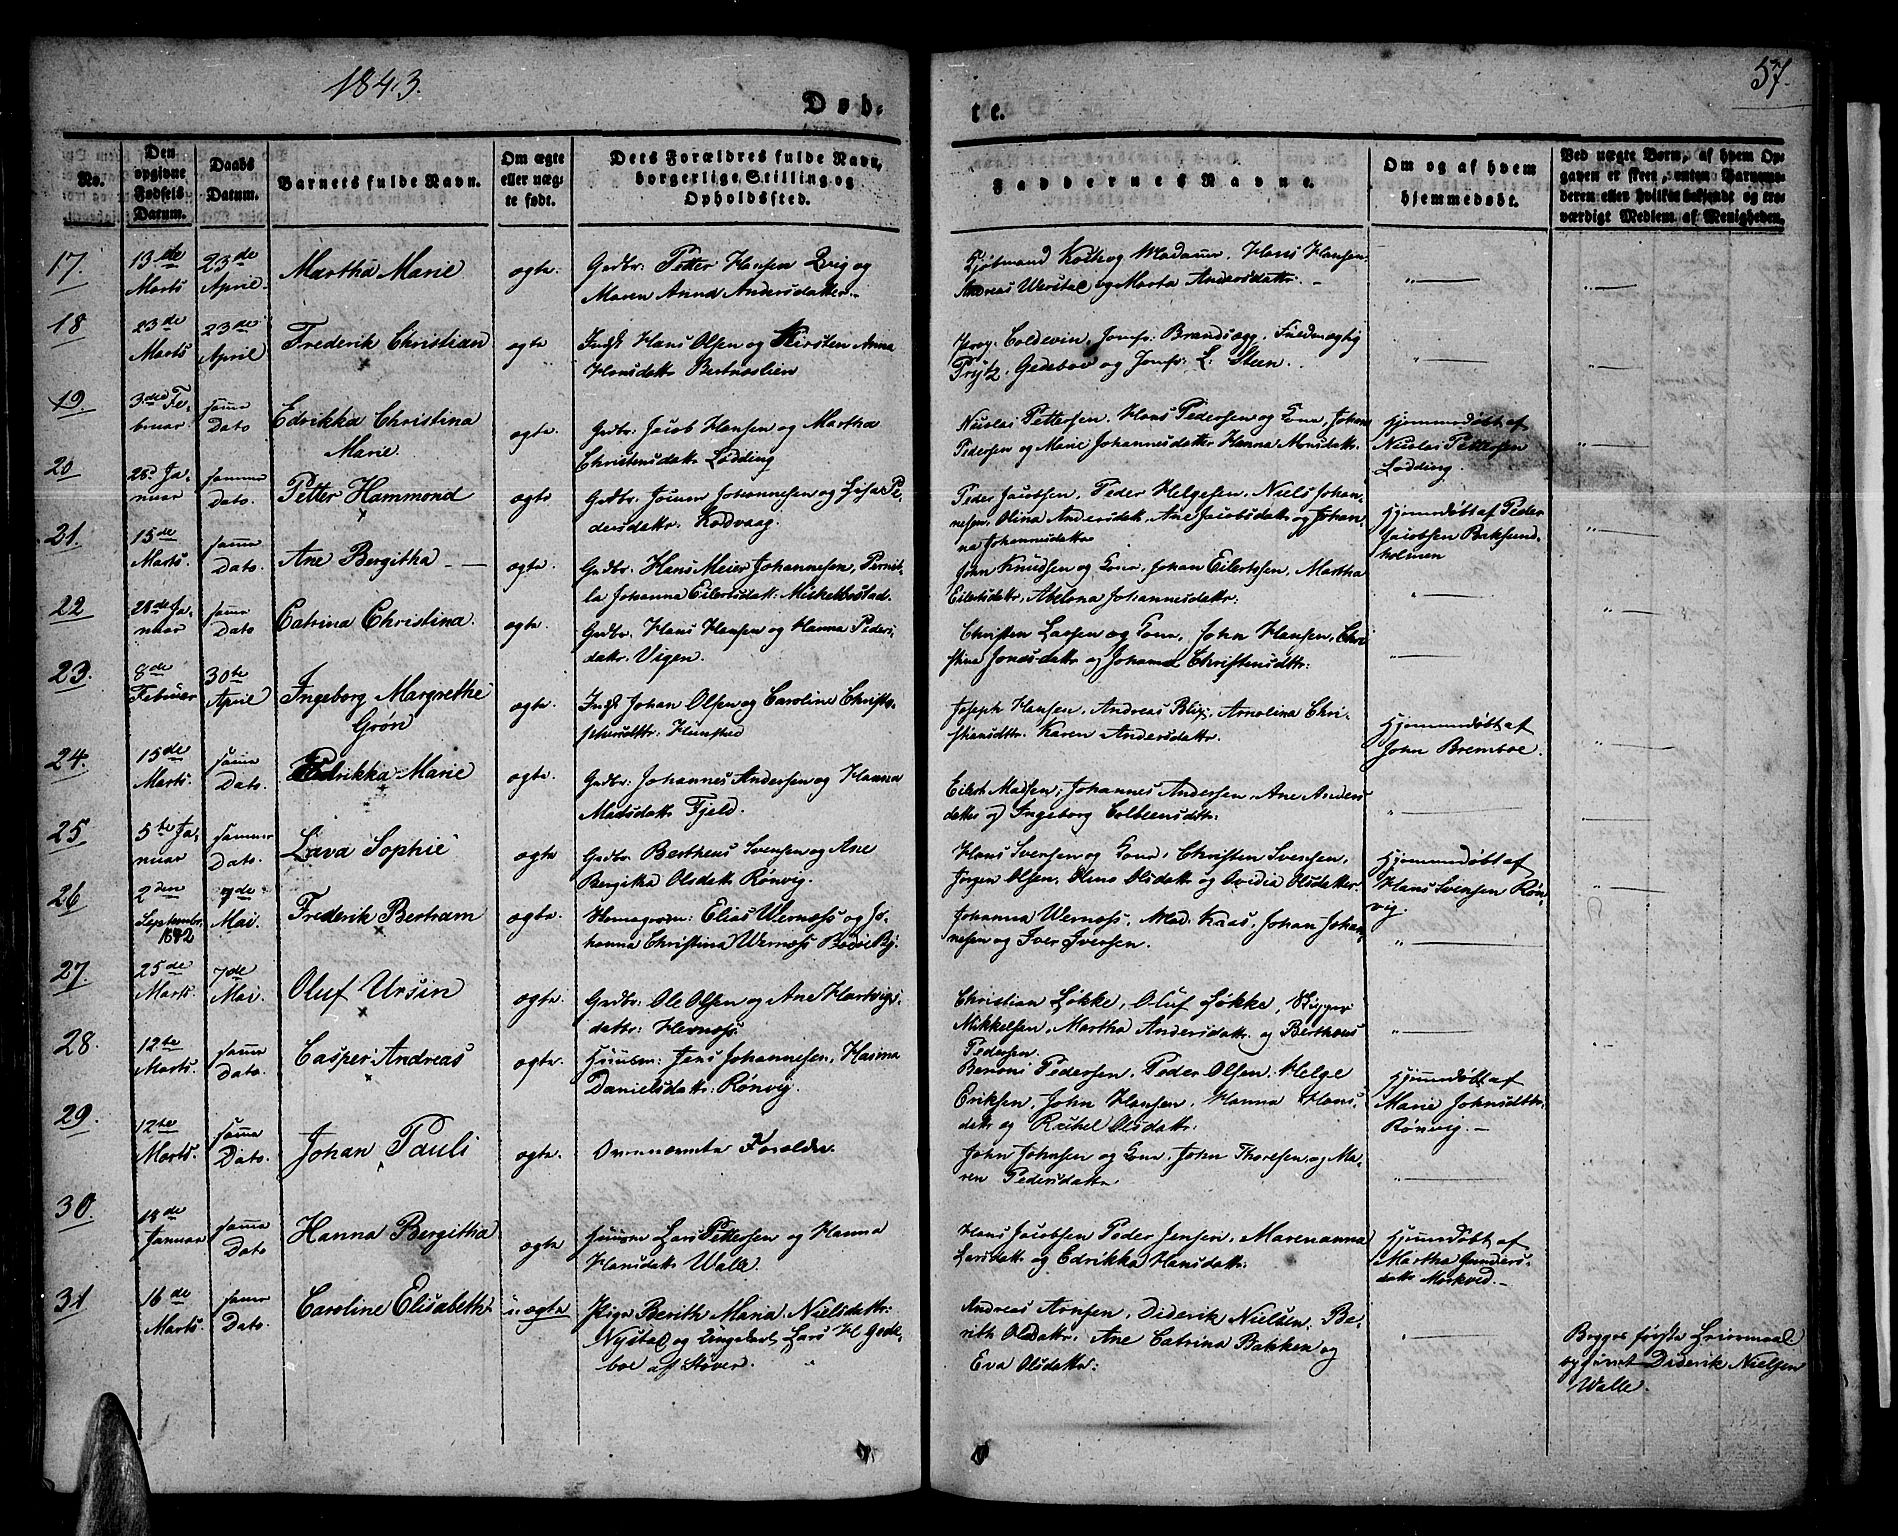 1843.
57
Døb-
te.
No.
Den opgivne Fødsels Datum.
Daabs Datum.
Barnets fulde Navn.
Om ægte eller uægte født.
Dets Forældres fulde Navn, borgerlige Stilling og Opholdssted.
Faddernes Navne.
Om og af hvem hjemmedøbt.
Ved uægte Børn, af hvem Opgaven er skeet, enten Barnemoderen eller hvilken bekjendt og troværdigt Medlem af Menigheden.
17. 13de Marts 23de April. Martha Marie ægte. Gdbr. Petter Hansen Qvig og
Maren Anna Andersdatter
Madame, Hans Hansen
Andreas Werstad og Marta Andersdattr.
18 23de Marts 23de April Frederik Christian ægte Indst Hans Olsen og Kirsten Anna
Hansdattr Bertnæslien
Coldevin, Jomfr: Brandsæg, Fuldmægtig
Prytz, Gedeboe og Jomfr: L: Steen.
19. 3die Februar samme Dato Edrikka Christina
Marie. ægte. Gdbr: Jacob Hansen og Martha
Christensdattr Lødding
Nicolai Pettersen, Hans Pedersen og Kone, Johan
Pedersen og Marie Johannesdatter Hanna Monsdattr.
Hjemmedøbt af
Nicolai Pettersen
Lødding.
20 Januar samme Dato. Petter Hammond ægte Johannesen og Pedersdattr. Kodvaag.
Peder Jacobsen, Peder Helgesen, Niels Johannesen, Olina Andersdatt, Ane Jacobsdattr og Johanna Johannesdattr
Hjemmedøbt af Peder
Jacobsen Bøksundholmen
21. 15de Marts. samme Dato. Ane Bergitha ægte. Gdbr: Hans Meier Johannesen, Pernilla Johanna Eilersdattr
John Knudsen og Kone, Johan Eilertsen, Martha
Eilersdattr, Abelona Johannesdattr:
22 28de Januar samme Dato Catrina Christina. ægte. Gdbr: Hans Hansen og Hanna Pedersdattr: Vigen.
Christen Larsen og Kone, John Hansen, Christina Jonsdattr og Johanna Christensdttr:
23. 8de Februar 30te April Ingeborg Margrethe
Grøn ægte. Indst Johan Olsen og Caroline Christophersdttr. Hunsted
Joseph Hansen, Andreas Blix, Arnolina Christiansdttr. Karen Andersdattr.
Hjemmedøbt af
John Bremboe.
24. 15de Marts. samme Dato. Pedrikka Marie ægte Gdbr: Johannes Andersen og Hanna
Madsdattr Fjeld.
Eilert Madsen, Johannes Andersen, Ane Andersdatter og Ingeborg
25 5te Januar sammer Dato. Lava Sophie ægte Gdbr: Bertheus Svensen og Ane
Bergitha Olsdattr Rønvig.
Hans Svensen og Kone, Christen Svensen,
Jørgen Olsen, Olsdattr og Olsdatter
Hjemmedøbt af
Hans Svensen Rønvig.
26 2den September 1842 7de Mai. Frederik Bertram ægte. Elias Wernæss og Johanna Christina Wernæss Bodøe By.
Johanna Wernæss, Mad: Kraas, Johan Johannesen og Iver Iversen.
27. 25de Marts. 7de Mai. Oluf Ursin ægte. Gdbr: Ole Olsen og Ane Hartvigsdattr: Hernæss.
Christian Løkke, Oluf Løkke,
Mikkelsen, Martha Andersdattr. og Bertheus
Pedersen.
28. 12te Marts. samme Dato. Casper Andreas ægte. Huusm: Jens Johannesen, Hanna
Danielsdattr: Rønvig.
Benoni Pedersen, Peder Olsen, Helge
Eriksen, John Hansen, Hanna Hansdattr og Rachel Olsdattr.
Hjemmedøbt af
Marie Johnsdttr.
Rønvig.
29. 12te Marts. samme Dato. Johan Pauli ægte. Ovennævnte Forældre.
John Johnsen og Kone, John Thoresen og Maren Pedersdattr
30. 18de Januar samme Dato Hanna Bergitha ægte Huusm Lars Pettersen og Hanna
Hansdattr Walle.
Hans Jacobsen Peder Jensen, Marenanna
Larsdattr og Edrikka Hansdattr:
Hjemmedøbt af
Martha Gundersdattr Mørkved.
31 16de Marts. samme Dato. Caroline Elisabeth uægte Pige Berith Maria Nielsdattr:
Nystad og Ungkarl Lars H Gedeboe af Støver.
Andreas Arnsen, Diderik Nielsen, Berith Olsdattr, Ane Catrina Bakken og
Eva Olsdattr:
Begges første Leiermaal
Diderik Nielsen
Walle.